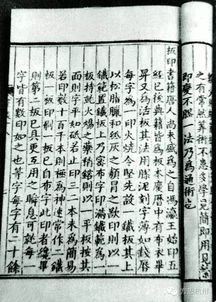 之有常然算術不患多學見簡即用見繁
即變不膠一法乃為通術也
板印書籍唐人尚未盛為之自馮瀛王始印五
經已後典籍皆為板本慶曆中有布衣畢
昇又為活板其法用膠泥刻字薄如錢唇
每字為一印火燒令堅先設一鐵板其上
以松脂臘和紙灰之類冒之欲印則以一
鐵範置鐵板上乃密布字印滿鐵範為一
板持就火煬之藥稍鎔則以一平板按其
面則字平如砥若止印三二本未為簡易
若印數十百千本則極為神速常作二鐵
板一板印刷一板已自布字此印者纔畢
則第二板已具更互用之瞬息可就每一
字皆有數印如之也等字每字有二十餘